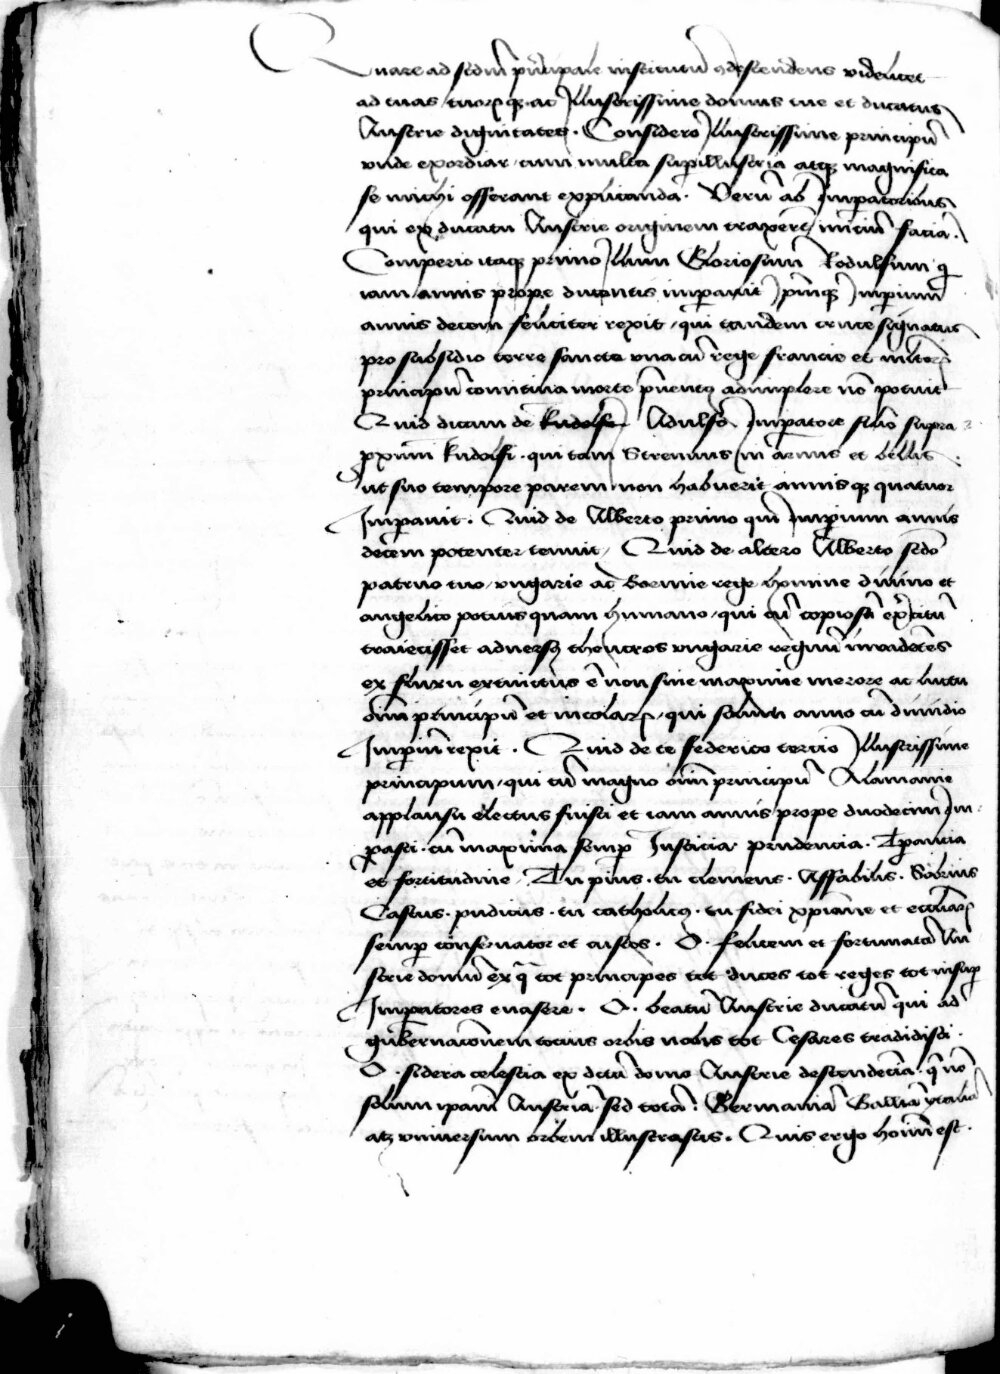 Quare ad scdm̄ pͥncipale institutū ꝯdescendens videlicet
ad tuas tuorꝝqꝫ ac Jllustrissime domus tue et ducatus
Austrie dignitates. Considero Jllustrissime principū
vnde exordiar cum multa supillustria atqꝫ magnifica
se michi offerant explicanda. Verū ab Jmpatoribus
qui ex ducatu Austrie originem traxerūt initiū faciā.
Comperio itaqꝫ primo Jllum Gloriosum Rodulfum q̄
iam annis prope ducentis imperavit Jmperium
annis decem feliciter rexit qui tandem cruce signatus
pro subsidio terre sancte vna cū rege francie et multorꝝ
principū comitiua morte pͥuentꝯ adimplere nō potuit
Quid dicam de Adulfo Jmpatore filio supra
pxiīm Rudolfi. qui tam strenuus in armis et bellis
ut suo tempore parem non habuerit annisqꝫ quatuor
Jmpauit. Quid de Alberto primo qui Jmpium annis
decem potenter tenuit / Quid de altero Alberto scdo
patruo tuo vngarie ac Boemie rege homine diuino et
angelico potius quam humano qui cū copiosū exͥcitū
traiecisset aduersꝯ theucros vngarie regnū inuadētes
ex fluxu extinctus ē non sine maxime merore ac luctu
oīm principū et incolarꝝ qui solum anno cū dimidio
Jmpiū rexit. Quid de te federico tercio Jllustrissime
principum qui cū magno oīm principū Alamanie
applausu electus fuisti et iam annis prope duodecim Jm-
pasti. cū maxima semp Justicia prudencia. Tpancia
et fortitudine / Tu pius. tu clemens. Affabilis. Sobrius
Castus. pudicus. tu catholicꝯ. tu fidei xpiane et eccliarꝝ
semp conseruator et custos. O. felicem et fortunatā Au
strie domū ex q̄ tot principes tot duces tot reges tot insup
Jmpatores euasere. O. beatū Austrie ducatū qui ad
gubernacōnem tocius orbis nobis tot Cesares tradidisti.
O. sidera celestia ex dcā domo Austrie descendēcia. q̄ nō
solum ipam Austriā sed totā. Germaniā Galliā ytaliā
atqꝫ vniuersum orbem illustrastis. Quis ergo hoīm est.